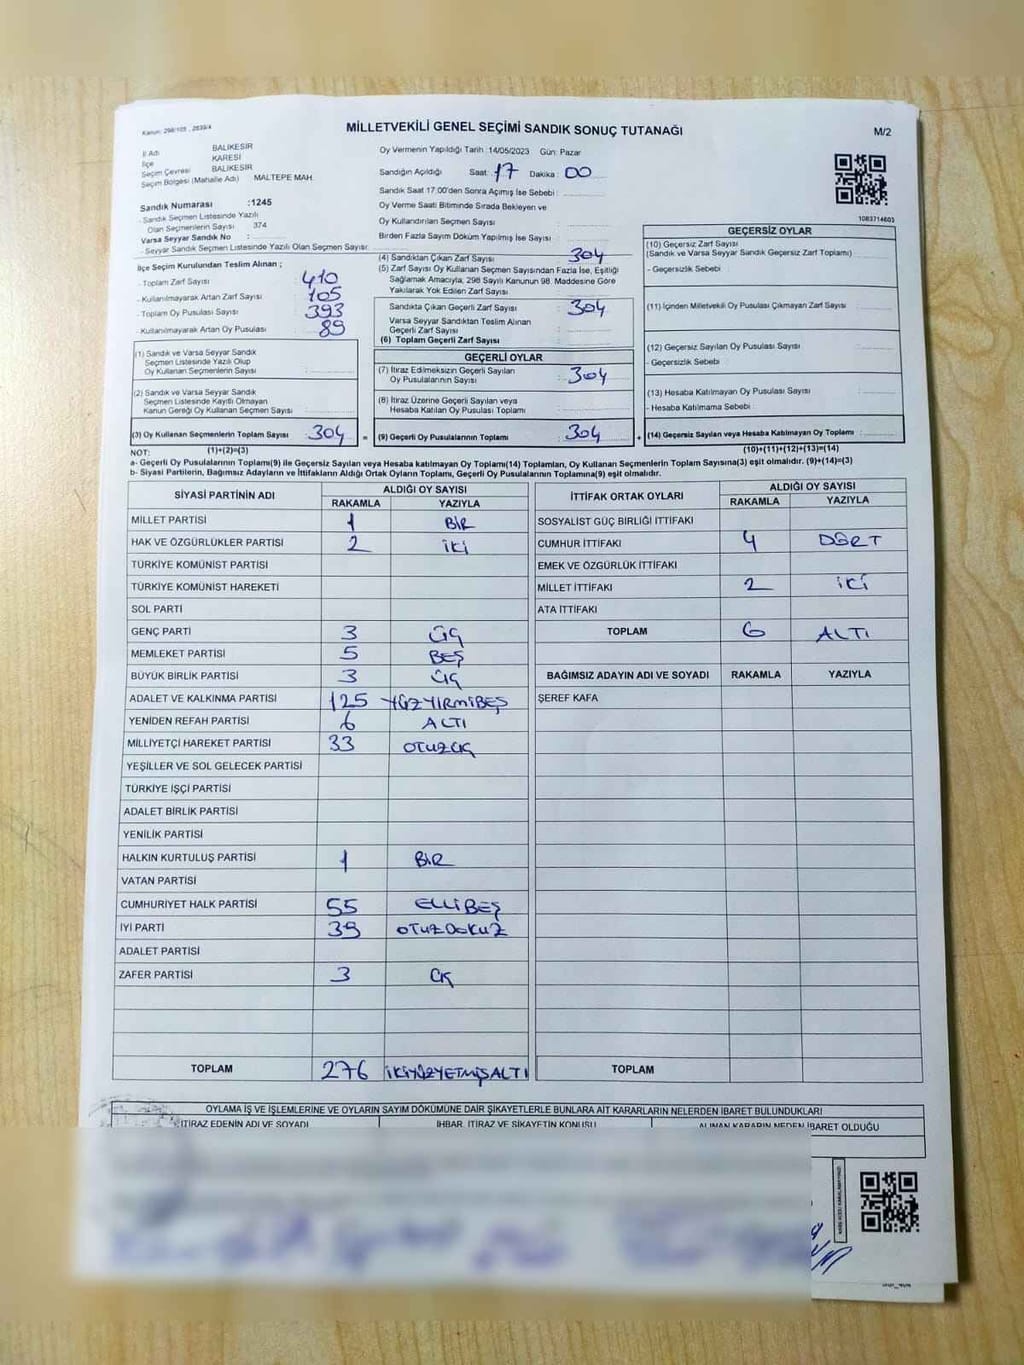 Kanun: 298/105 , 2839/4
MİLLETVEKİLİ GENEL SEÇİMİ SANDIK SONUÇ TUTANAĞI
M/2
İl Adı BALIKESİR
İlçe KARESİ
Seçim Çevresi BALIKESİR
Seçim Bölgesi (Mahalle Adı) MALTEPE MAH.
Oy Vermenin Yapıldığı Tarih :14/05/2023 Gün: Pazar
Sandığın Açıldığı Saat: 17 Dakika : 00
Sandık Saat 17.00'den Sonra Açılmış İse Sebebi :
Oy Verme Saati Bitiminde Sırada Bekleyen ve
Oy Kullandırılan Seçmen Sayısı :
Birden Fazla Sayım Döküm Yapılmış İse Sayısı :
1083714603
Sandık Numarası :1245
- Sandık Seçmen Listesinde Yazılı
Olan Seçmenlerin Sayısı : 374
Varsa Seyyar Sandık No :
- Seyyar Sandık Seçmen Listesinde Yazılı Olan Seçmen Sayısı:
İlçe Seçim Kurulundan Teslim Alınan ;
- Toplam Zarf Sayısı : 410
- Kullanılmayarak Artan Zarf Sayısı : 105
- Toplam Oy Pusulası Sayısı : 393
- Kullanılmayarak Artan Oy Pusulası : 89
(1) Sandık ve Varsa Seyyar Sandık
Seçmen Listesinde Yazılı Olup
Oy Kullanan Seçmenlerin Sayısı :
(2) Sandık ve Varsa Seyyar Sandık
Seçmen Listesinde Kayıtlı Olmayan
Kanun Gereği Oy Kullanan Seçmen Sayısı :
(3) Oy Kullanan Seçmenlerin Toplam Sayısı : 304 =
(4) Sandıktan Çıkan Zarf Sayısı : 304
(5) Zarf Sayısı Oy Kullanan Seçmen Sayısından Fazla İse, Eşitliği
Sağlamak Amacıyla, 298 Sayılı Kanunun 98. Maddesine Göre
Yakılarak Yok Edilen Zarf Sayısı :
Sandıkta Çıkan Geçerli Zarf Sayısı : 304
Varsa Seyyar Sandıktan Teslim Alınan
Geçerli Zarf Sayısı :
(6) Toplam Geçerli Zarf Sayısı :
GEÇERLİ OYLAR
(7) İtiraz Edilmeksizin Geçerli Sayılan
Oy Pusulalarının Sayısı : 304
(8) İtiraz Üzerine Geçerli Sayılan veya
Hesaba Katılan Oy Pusulası Toplamı :
(9) Geçerli Oy Pusulalarının Toplamı : 304 +
GEÇERSİZ OYLAR
(10) Geçersiz Zarf Sayısı
(Sandık ve Varsa Seyyar Sandık Geçersiz Zarf Toplamı) :
- Geçersizlik Sebebi :
(11) İçinden Milletvekili Oy Pusulası Çıkmayan Zarf Sayısı :
(12) Geçersiz Sayılan Oy Pusulası Sayısı :
- Geçersizlik Sebebi :
(13) Hesaba Katılmayan Oy Pusulası Sayısı :
- Hesaba Katılmama Sebebi :
(14) Geçersiz Sayılan veya Hesaba Katılmayan Oy Toplamı :
NOT: (1)+(2)=(3) (10)+(11)+(12)+(13)=(14)
a- Geçerli Oy Pusulalarının Toplamı(9) ile Geçersiz Sayılan veya Hesaba katılmayan Oy Toplamı(14) Toplamları, Oy Kullanan Seçmenlerin Toplam Sayısına(3) eşit olmalıdır. (9)+(14)=(3)
b- Siyasi Partilerin, Bağımsız Adayların ve İttifakların Aldığı Oyların Toplamı, Geçerli Oy Pusulalarının Toplamına(9) eşit olmalıdır.
SİYASİ PARTİNİN ADI ALDIĞI OY SAYISI
RAKAMLA YAZIYLA
MİLLET PARTİSİ 1 BİR
HAK VE ÖZGÜRLÜKLER PARTİSİ 2 İKİ
TÜRKİYE KOMÜNİST PARTİSİ
TÜRKİYE KOMÜNİST HAREKETİ
SOL PARTİ
GENÇ PARTİ 3 ÜÇ
MEMLEKET PARTİSİ 5 BEŞ
BÜYÜK BİRLİK PARTİSİ 3 ÜÇ
ADALET VE KALKINMA PARTİSİ 125 YÜZYİRMİBEŞ
YENİDEN REFAH PARTİSİ 6 ALTI
MİLLİYETÇİ HAREKET PARTİSİ 33 OTUZÜÇ
YEŞİLLER VE SOL GELECEK PARTİSİ
TÜRKİYE İŞÇİ PARTİSİ
ADALET BİRLİK PARTİSİ
YENİLİK PARTİSİ
HALKIN KURTULUŞ PARTİSİ 1 BİR
VATAN PARTİSİ
CUMHURİYET HALK PARTİSİ 55 ELLİBEŞ
İYİ PARTİ 39 OTUZDOKUZ
ADALET PARTİSİ
ZAFER PARTİSİ 3 ÜÇ
TOPLAM 276 İKİYÜZYETMİŞALTI
İTTİFAK ORTAK OYLARI ALDIĞI OY SAYISI
RAKAMLA YAZIYLA
SOSYALİST GÜÇ BİRLİĞİ İTTİFAKI
CUMHUR İTTİFAKI 4 DÖRT
EMEK VE ÖZGÜRLÜK İTTİFAKI
MİLLET İTTİFAKI 2 İKİ
ATA İTTİFAKI
TOPLAM 6 ALTI
BAĞIMSIZ ADAYIN ADI VE SOYADI RAKAMLA YAZIYLA
ŞEREF KAFA
TOPLAM
OYLAMA İŞ VE İŞLEMLERİNE VE OYLARIN SAYIM DÖKÜMÜNE DAİR ŞİKAYETLERLE BUNLARA AİT KARARLARIN NELERDEN İBARET BULUNDUKLARI
İTİRAZ EDENİN ADI VE SOYADI İHBAR, İTİRAZ VE ŞİKAYETİN KONUSU ALINAN KARARIN NEDEN İBARET OLDUĞU